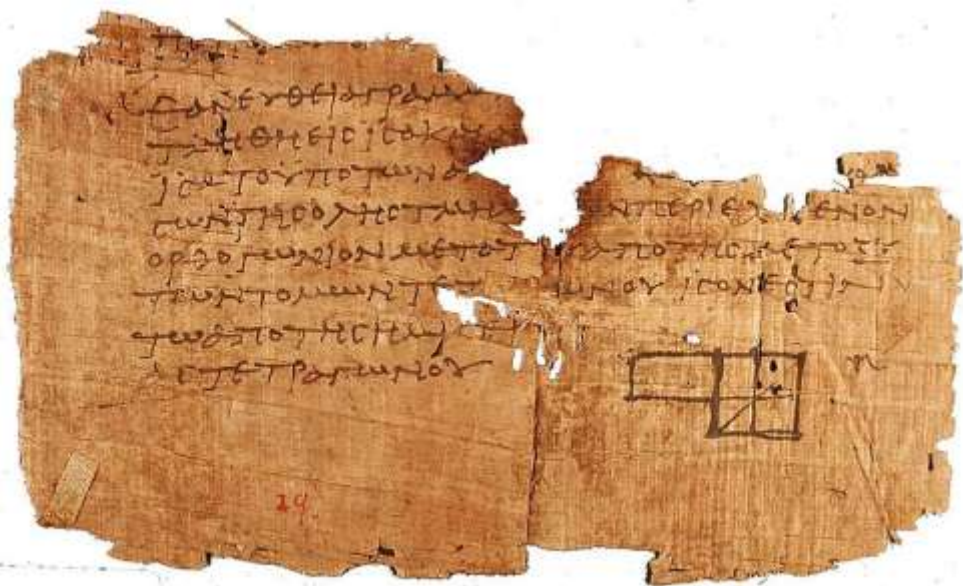 ΕΑΝ ΕΥΘΕΙΑ ΓΡΑΜΜ
ΤΜΗΘΗ ΕΙϹ ΙϹΑ ΚΑΙ
ΙϹΑ ΤΟ ΥΠΟ ΤΩΝ Α
ϹΩΝ ΤΗϹ ΟΛΗϹ ΤΜΗ ΩΝ ΠΕΡΙΕΧ ΜΕΝΟΝ
ΟΡΘΟΓΩΝΙΟΝ ΜΕΤΑ Τ ΑΠΟ ΤΗϹ ΜΕΤΟΞΥ
ΤΩΝ ΤΟΜΩΝ ΤΕΤ ΩΝΟΥ ΙϹΟΝ ΕϹΤΙΝ
ΤΩ ΑΠΟ ΤΗϹ ΗΜΙϹ
ΑϹ ΤΕΤΡΑΓΩΝΟΥ
29.